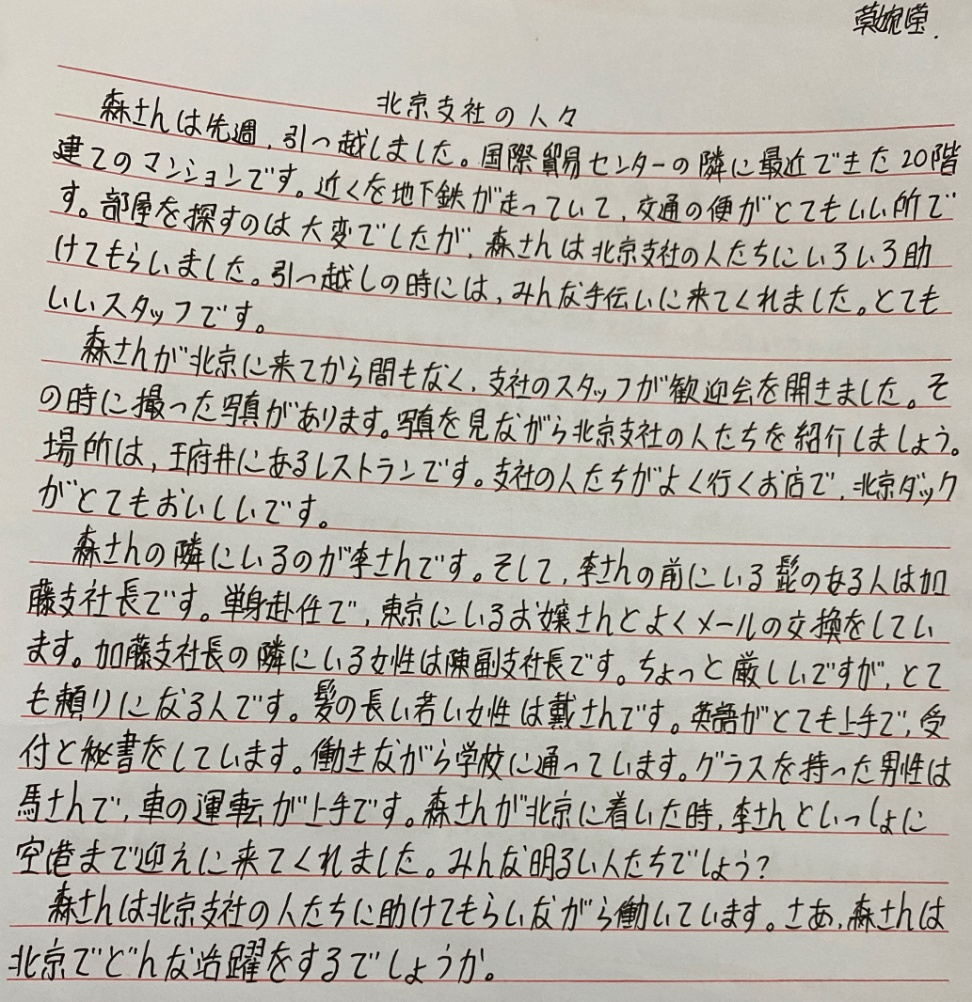 莫婉莹.
北京支社の人々
森さんは先週,引っ越しました。国際貿易センターの隣に最近できた20階
建てのマンションです。近くを地下鉄が走っていて,交通の便がとてもいい所で
す。部屋を探すのは大変でしたが,森さんは北京支社の人たちにいろいろ助
けてもらいました。引っ越しの時には,みんな手伝いに来てくれました。とても
いいスタッフです。
森さんが北京に来てから間もなく,支社のスタッフが歓迎会を開きました。そ
の時に撮った写真があります。写真を見ながら北京支社の人たちを紹介しましょう。
場所は,王府井にあるレストランです。支社の人たちがよく行くお店で,北京ダック
がとてもおいしいです。
森さんの隣にいるのが李さんです。そして,李さんの前にいる髭のある人は加
藤支社長です。単身赴任で,東京にいるお嬢さんとよくメールの交換をしてい
ます。加藤支社長の隣にいる女性は陳副支社長です。ちょっと厳しいですが,とて
も頼りになる人です。髪の長い若い女性は戴さんです。英語がとても上手で,受
付と秘書をしています。働きながら学校に通っています。グラスを持った男性は
馬さんで,車の運転が上手です。森さんが北京に着いた時,李さんといっしょに
空港まで迎えに来てくれました。みんな明るい人たちでしょう?
森さんは北京支社の人たちに助けてもらいながら働いています。さあ,森さんは
北京でどんな活躍をするでしょうか。